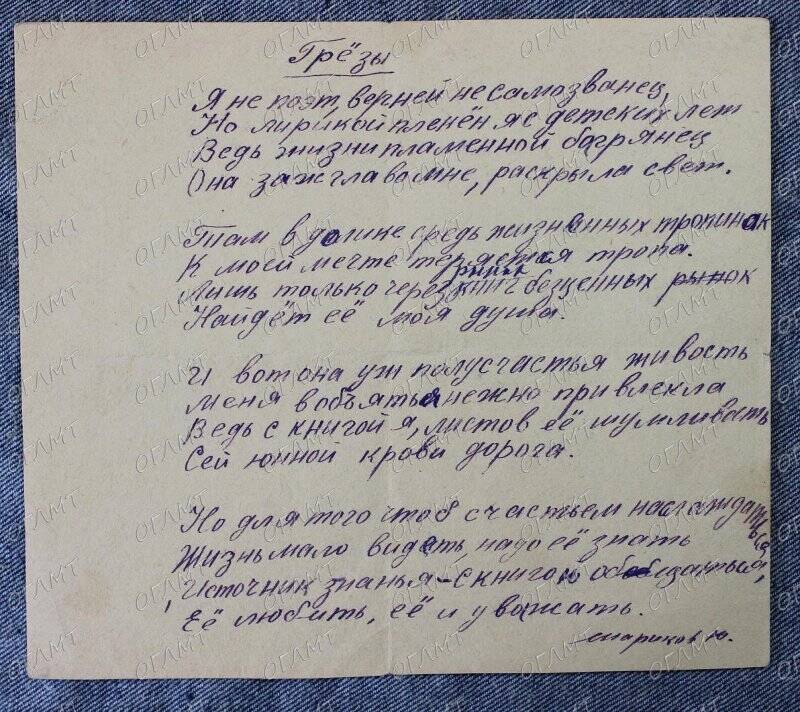 Грёзы
Я не поэт, верней не самозванец,
Но лирикой пленён я с детских лет
Ведь жизни пламенной багрянец
Она зажгла во мне, раскрыла свет.
Там в долине средь жизненных тропинок
К моей мечте теряется тропа.
рынок
Лишь только через книг бесценных рынок
Найдёт её моя душа.
И вот она уж полусчастья живость
Меня в объятья нежно привлекла
Ведь с книгой я, листов её шумливость
Сей юнной крови дорога.
Но для того чтоб счастьем наслаждаться
Жизнь мало видеть, надо её знать
Источник знанья – с книгою общаться,
Её любить, её и уважать.
Мариков Ю.